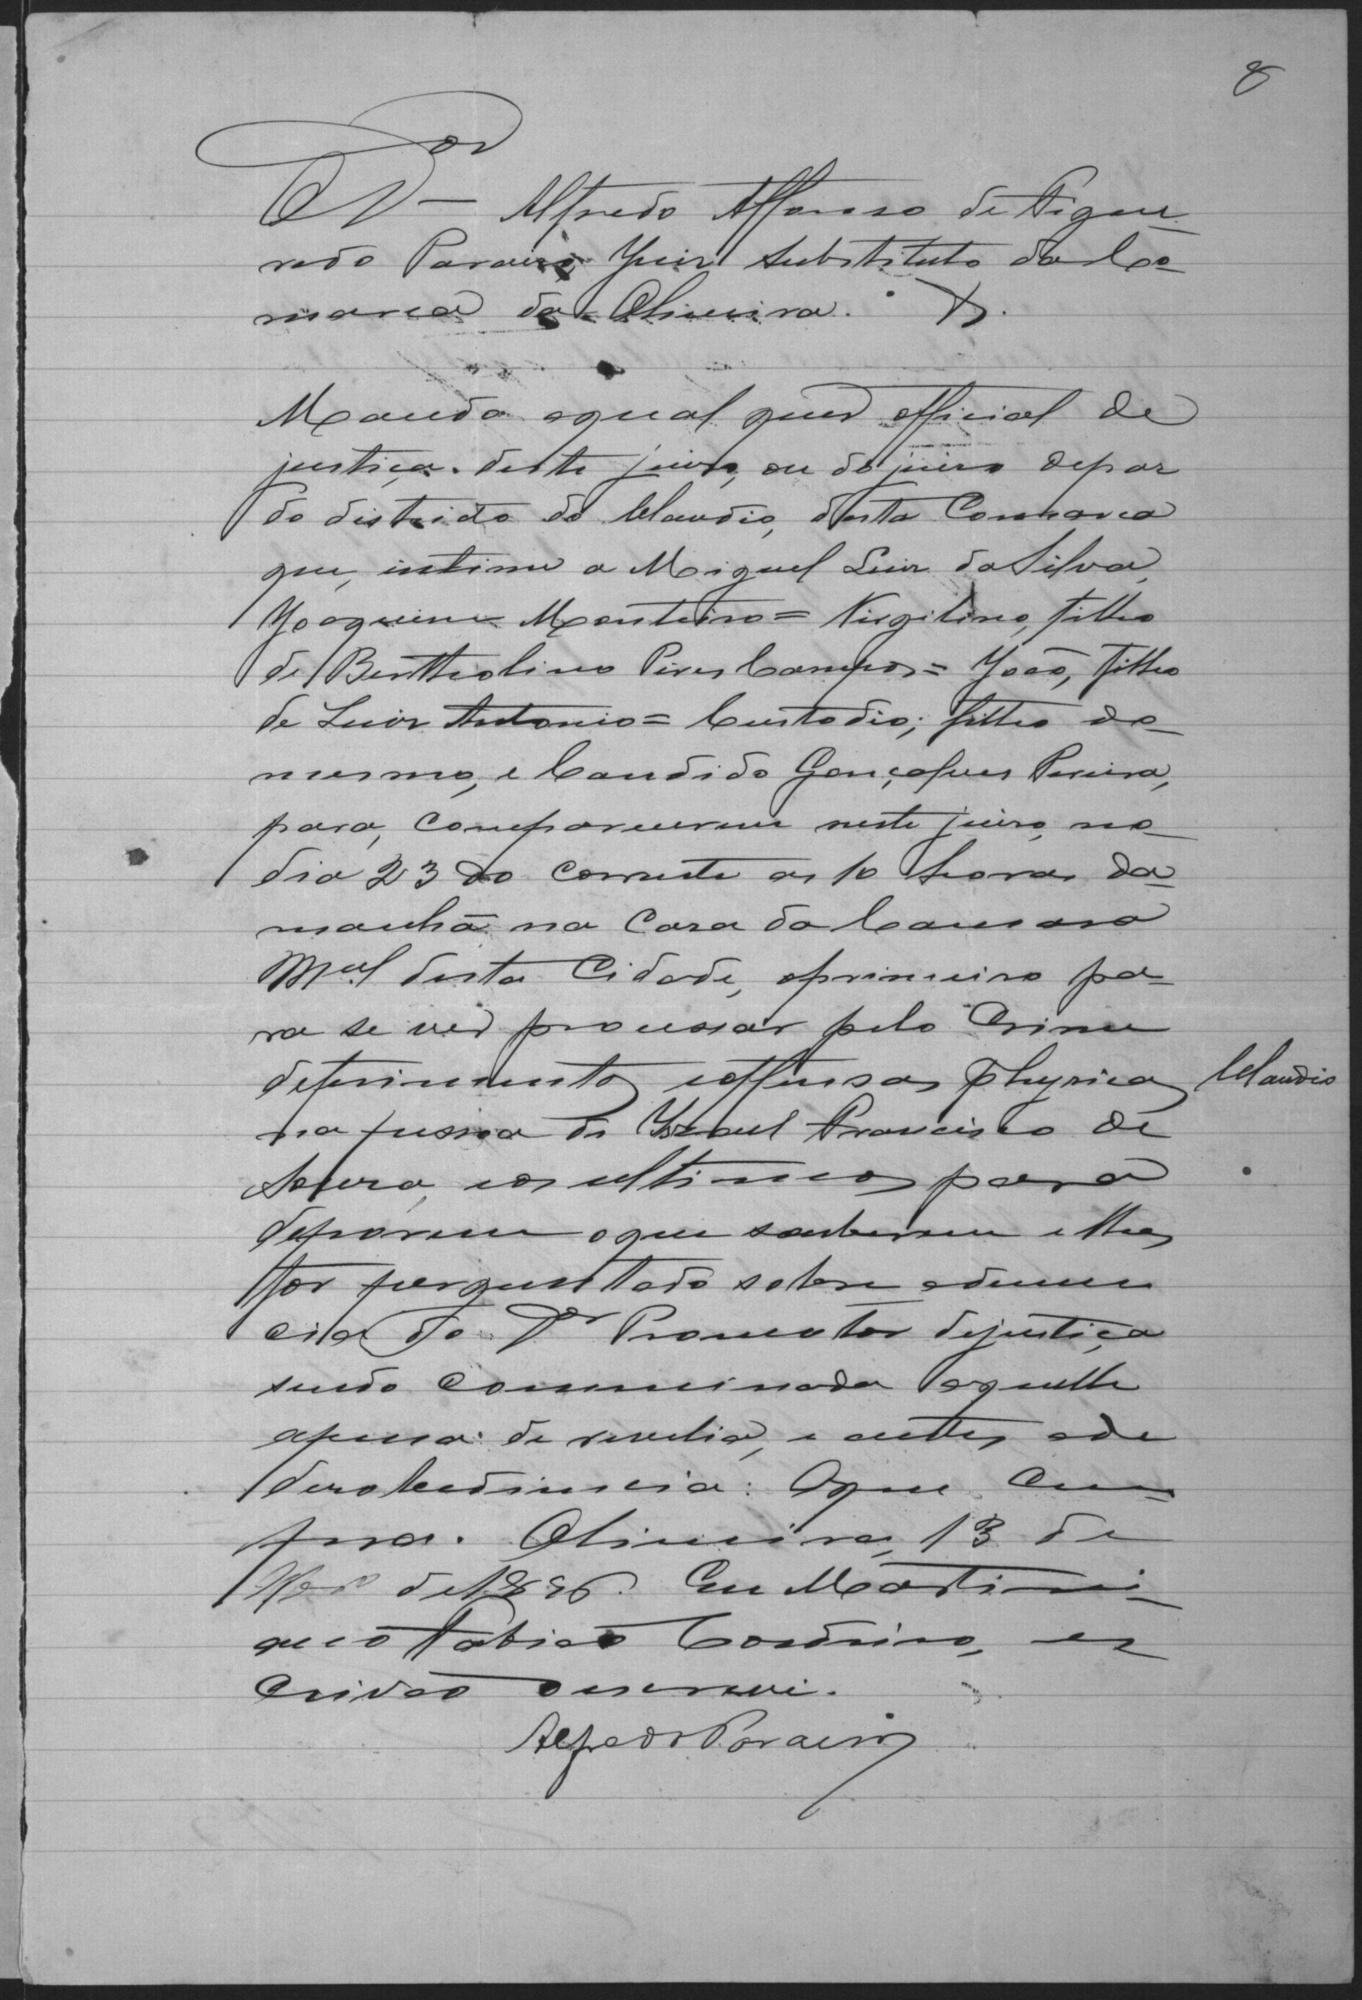 8
O Dor Alfredo Affonso de Figuei-
redo Paraizo, Juiz substituto da Co-
marca da Oliveira. &.
Mando aqual quer official de
justiça deste juizo, ou do juizo depaz
do districto do Claudio, desta Commarca
que, intime a Miguel Luiz da Silva,
Joaquim Monteiro = Virgilino, filho
de Bertholino Pires Campos = João, filho
de Luiz Antonio = Custodio, filho do
mesmo, e Candido Gonçalves Pereira,
para, comparecerem neste juizo, no
dia 23 do corrente as 10 horas da
manhã na Casa da Camara
Mcal desta Cidade, oprimeiro pa-
ra se ver processar pelo Crime
deferimentos eoffensas physicas Claudio
na pessoa de Israel Francisco de
Souza, eos ultimos para
deporem oque souberem e lhes
for perguntado sobre adenun
cia do Dr Promotor dejustiça
sendo comminada aquelle
apena de revelia, e aestes ade
desobediencia: Oque cum-
pra. Oliveira, 13 de
de 1896. Eu Martini-
ano Cordeiro, es
crivão oescrevi.
Alfredo Paraizo